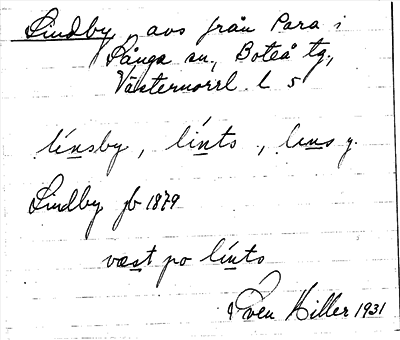 Lindby avs från Para i
Långa sn, Boteå tg.,
Västernorrl. L 5
línsby, línto, lins y.
Lindby fb 1879
væst po línto
Sven Hiller 1931